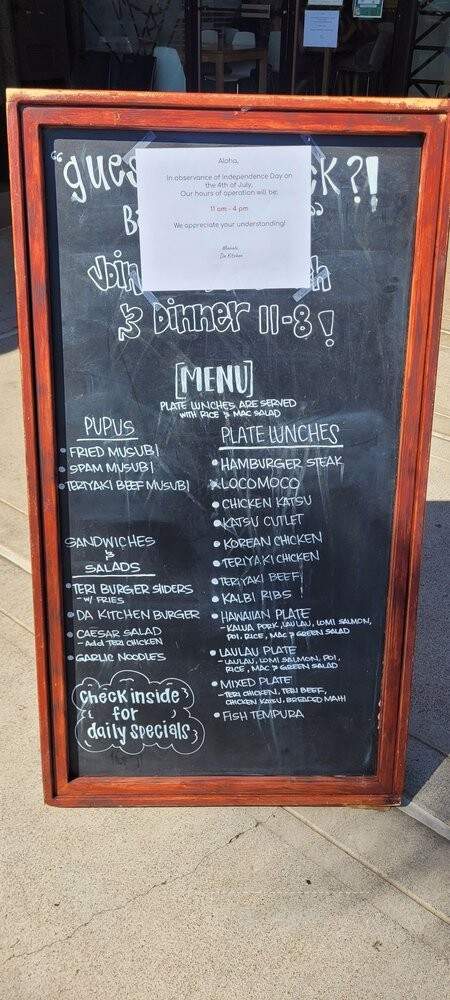 Aloha,
In observance of Independence Day on
the 4th of July,
Our hours of operation will be:
11 am - 4 pm
We appreciate your understanding!
Mahalo,
Da Kitchen
"Gues K?!
B "
Join ch
& Dinner 11-8!
[MENU]
PLATE LUNCHES ARE SERVED
WITH RICE & MAC SALAD
PUPUS
• FRIED MUSUBI
• SPAM MUSUBI
• TERIYAKI BEEF MUSUBI
SANDWICHES
&
SALADS
• TERI BURGER SLIDERS
- W/ FRIES
• DA KITCHEN BURGER
• CAESAR SALAD
- Add TERI CHICKEN
• GARLIC NOODLES
Check inside
for
daily specials
PLATE LUNCHES
• HAMBURGER STEAK
• LOCOMOCO
• CHICKEN KATSU
• KATSU CUTLET
• KOREAN CHICKEN
• TERIYAKI CHICKEN
• TERIYAKI BEEF
• KALBI RIBS !
• HAWAIIAN PLATE
- KALUA PORK, LAULAU, LOMI SALMON,
POI, RICE, MAC & GREEN SALAD
• LAULAU PLATE
- LAULAU, LOMI SALMON, POI,
RICE, MAC & GREEN SALAD
• MIXED PLATE
- TERI CHICKEN, TERI BEEF,
CHICKEN KATSU, BREADED MAHI
• FISH TEMPURA